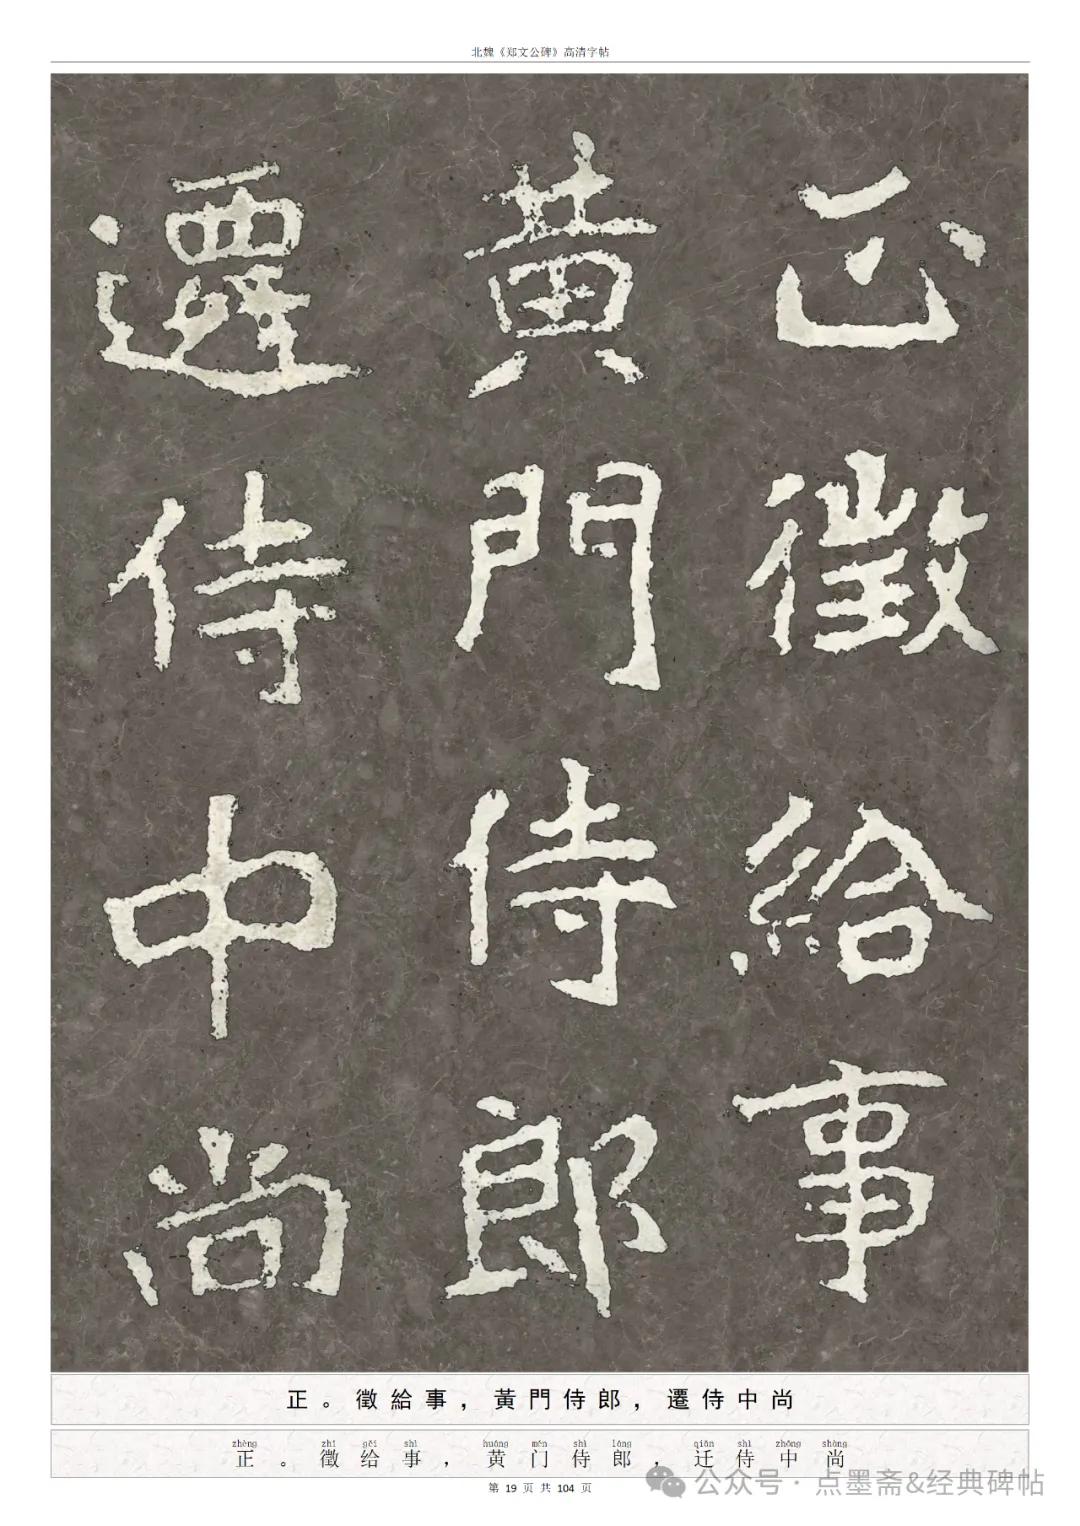 北魏《郑文公碑》高清字帖
正徵給事
黃門侍郎
遷侍中尚
正。徵給事，黃門侍郎，遷侍中尚
zhèng zhǐ gěi shì huáng mén shì láng qiān shì zhōng shàng
正。徵给事，黄门侍郎，迁侍中尚
第 19 页 共 104 页
公众号 · 点墨斋&经典碑帖